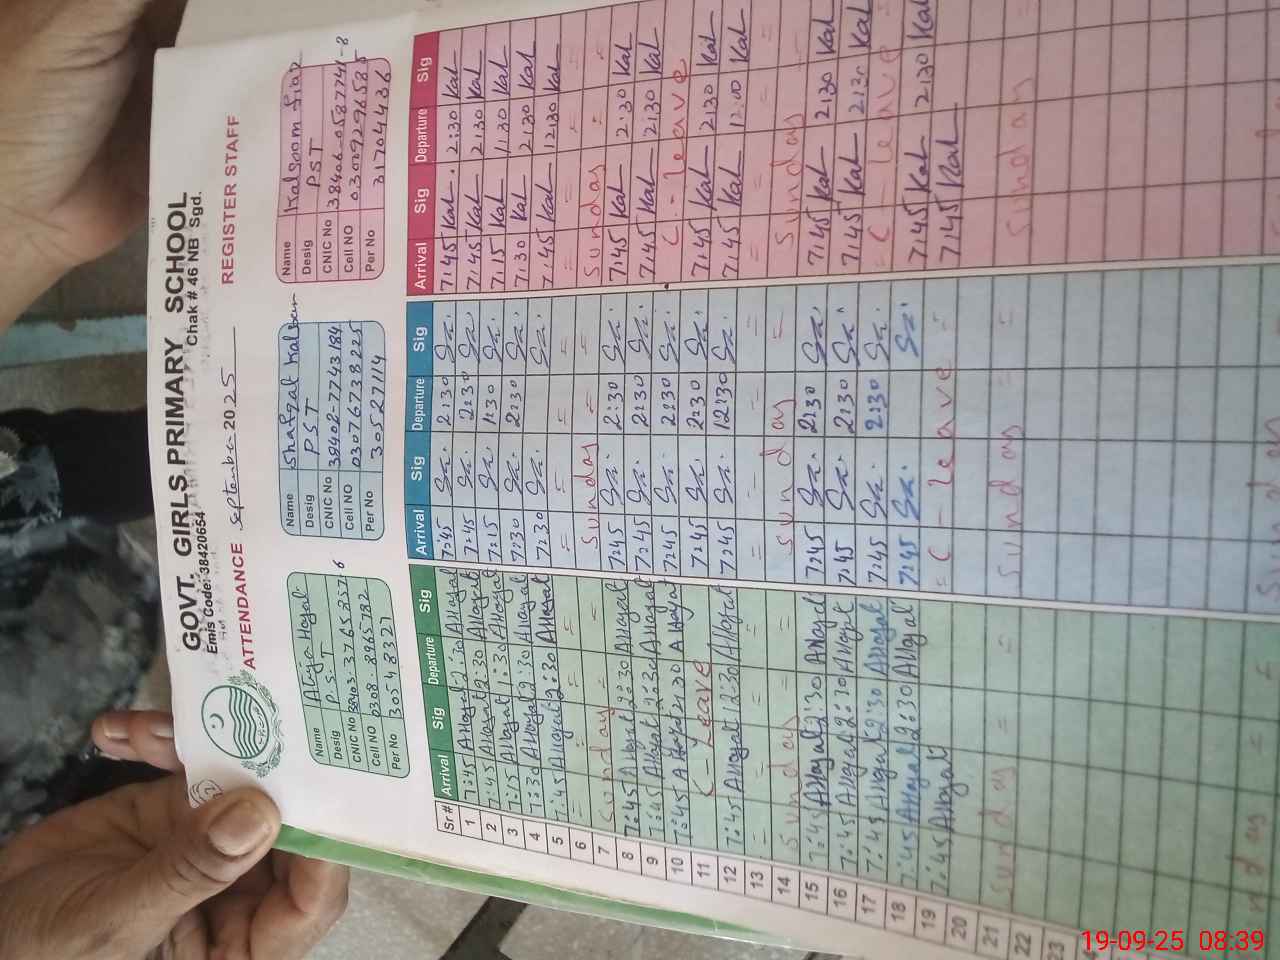 GOVT. GIRLS PRIMARY SCHOOL
Emis Code: 38420654 Chak # 46 NB Sgd.
ATTENDANCE September 2025 REGISTER STAFF
Name Atiya Hayat
Desig P.S.T
CNIC No 38403-3765257 6
Cell NO 0308-8965782
Per No 30548327
Name Shafqat Kalsoom
Desig PST
CNIC No 38402-7743184
Cell NO 03076738225
Per No 30527114
Name Kalsoom
Desig PST
CNIC No 38406-0587741-8
Cell NO 03092926585
Per No 31704436
Sr# Arrival Sig Departure Sig Arrival Sig Departure Sig Arrival Sig Departure Sig
1 7:45 AHayat 2:30 AHayat 7:45 Sk. 2:30 Sk. 7:45 Kal 2:30 Kal
2 7:45 AHayat 2:30 AHayat 7:45 Sk. 2:30 Sk. 7:45 Kal 2:30 Kal
3 7:15 AHayat 1:30 AHayat 7:15 Sk. 1:30 Sk. 7:15 Kal 1:30 Kal
4 7:30 AHayat 2:30 AHayat 7:30 Sk. 2:30 Sk. 7:30 Kal 2:30 Kal
5 7:45 AHayat 12:30 AHayat 7:30 Sk. Sk. 7:45 Kal 12:30 Kal
6 = = = = = = = =
7 Sunday = = Sunday = = Sunday = =
8 7:45 AHayat 2:30 AHayat 7:45 Sk. 2:30 Sk. 7:45 Kal 2:30 Kal
9 7:45 AHayat 2:30 AHayat 7:45 Sk. 2:30 Sk. 7:45 Kal 2:30 Kal
10 7:45 AHayat 2:30 AHayat 7:45 Sk. 2:30 Sk. C - leave
11 C - Leave 7:45 Sk. 2:30 Sk. 7:45 Kal 2:30 Kal
12 7:45 AHayat 12:30 AHayat 7:45 Sk. 12:30 Sk. 7:45 Kal 12:00 Kal
13 = = = = = = = =
14 Sunday = = Sunday = Sunday =
15 7:45 AHayat 2:30 AHayat 7:45 Sk. 2:30 Sk. 7:45 Kal 2:30 Kal
16 7:45 AHayat 2:30 AHayat 7:45 Sk. 2:30 Sk. 7:45 Kal 2:30 Kal
17 7:45 AHayat 2:30 AHayat 7:45 Sk. 2:30 Sk. = C - leave =
18 7:45 AHayat 2:30 AHayat 7:45 Sk. Sk. 7:45 Kal 2:30 Kal
19 7:45 AHayat = C - leave = 7:45 Kal
20
21 Sunday = = Sunday = Sunday =
22
23
19-09-25 08:39